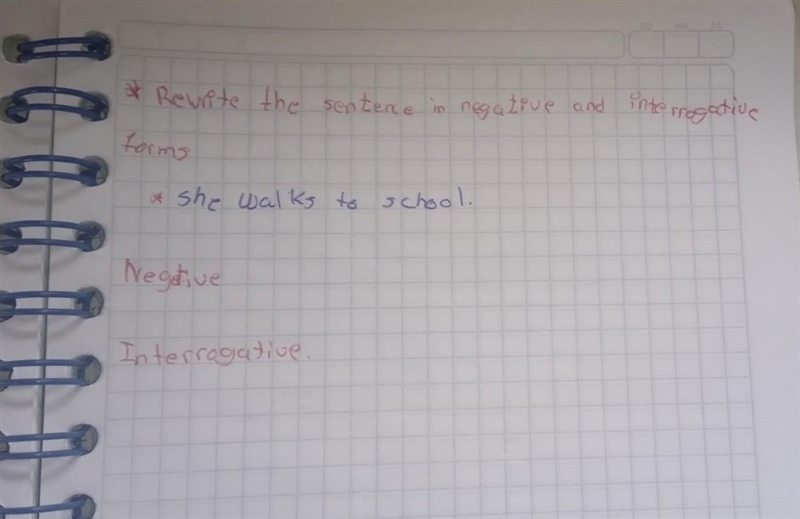 * Rewrite the sentence in negative and interrogative
forms
* she walks to school.
Negative
Interrogative.